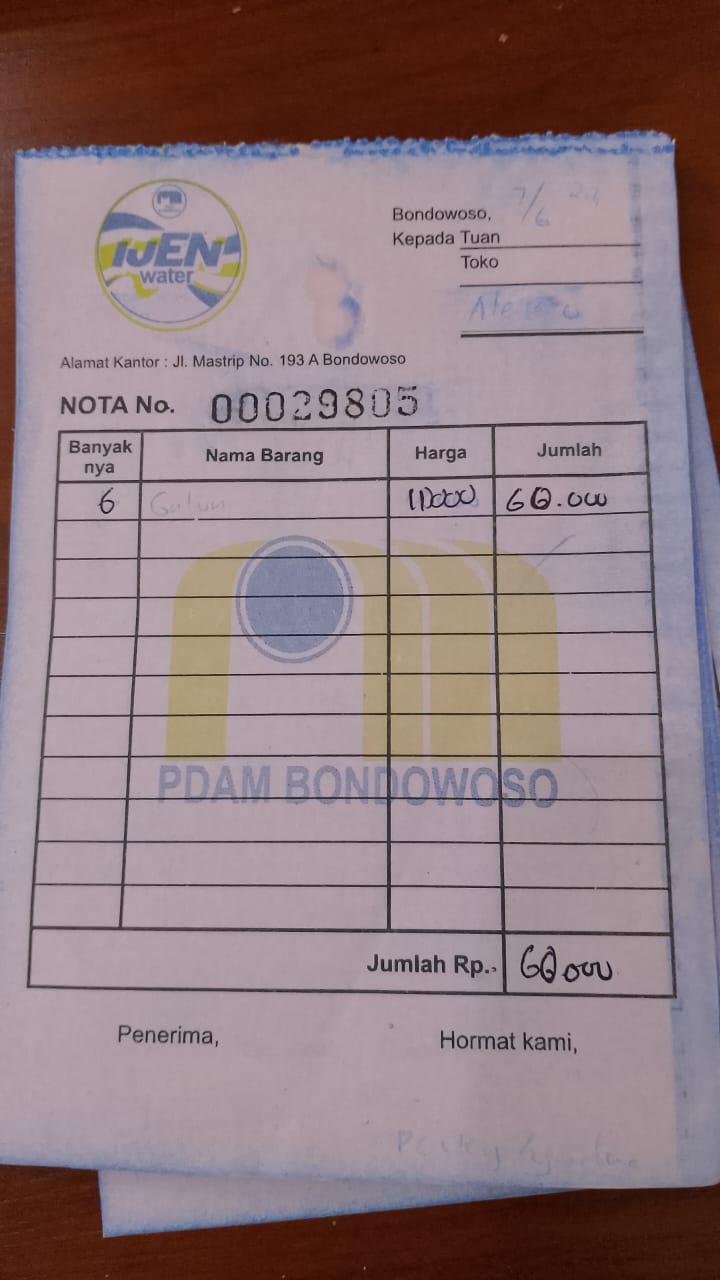 IJEN
water
Bondowoso, 7/6
Kepada Tuan
Toko
Alamat Kantor : Jl. Mastrip No. 193 A Bondowoso
NOTA No. 00029805
Banyak nya Nama Barang Harga Jumlah
6 Galun 11000
PDAM BONDOWOSO
Jumlah Rp.
Penerima, Hormat kami,